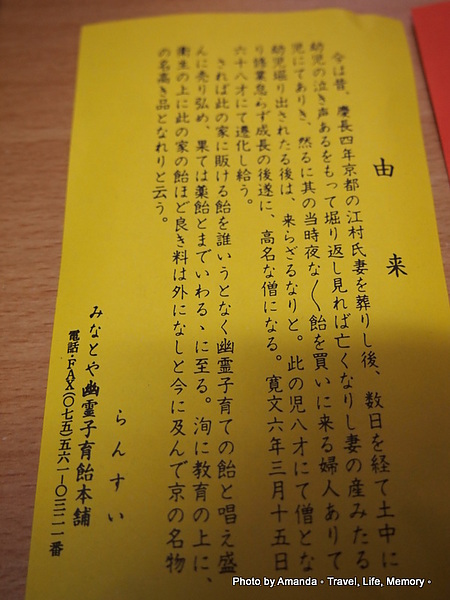 由来
今は昔、慶長四年京都の江村氏妻を葬りし後、数日を経て土中に
幼児の泣き声あるをもって堀り返し見れば亡くなりし妻の産みたる
児にてありき、然るに其の当時夜な〱飴を買いに来る婦人ありて
幼児堀り出されたる後は、来らざるなりと。此の児八才にて僧とな
り修業怠らず成長の後遂に、高名な僧になる。寛文六年三月十五日
六十八才にて遷化し給う。
されば此の家に販ける飴を誰いうとなく幽霊子育ての飴と唱え盛
んに売り弘め、果ては薬飴とまでいわるゝに至る。洵に教育の上に、
衛生の上に此の家の飴ほど良き料は外になしと今に及んで京の名物
の名高き品となれりと云う。
らんすい
みなとや幽霊子育飴本舗
電話・FAX(〇七五)五六一―〇三二一番
Photo by Amanda。Travel, Life, Memory。